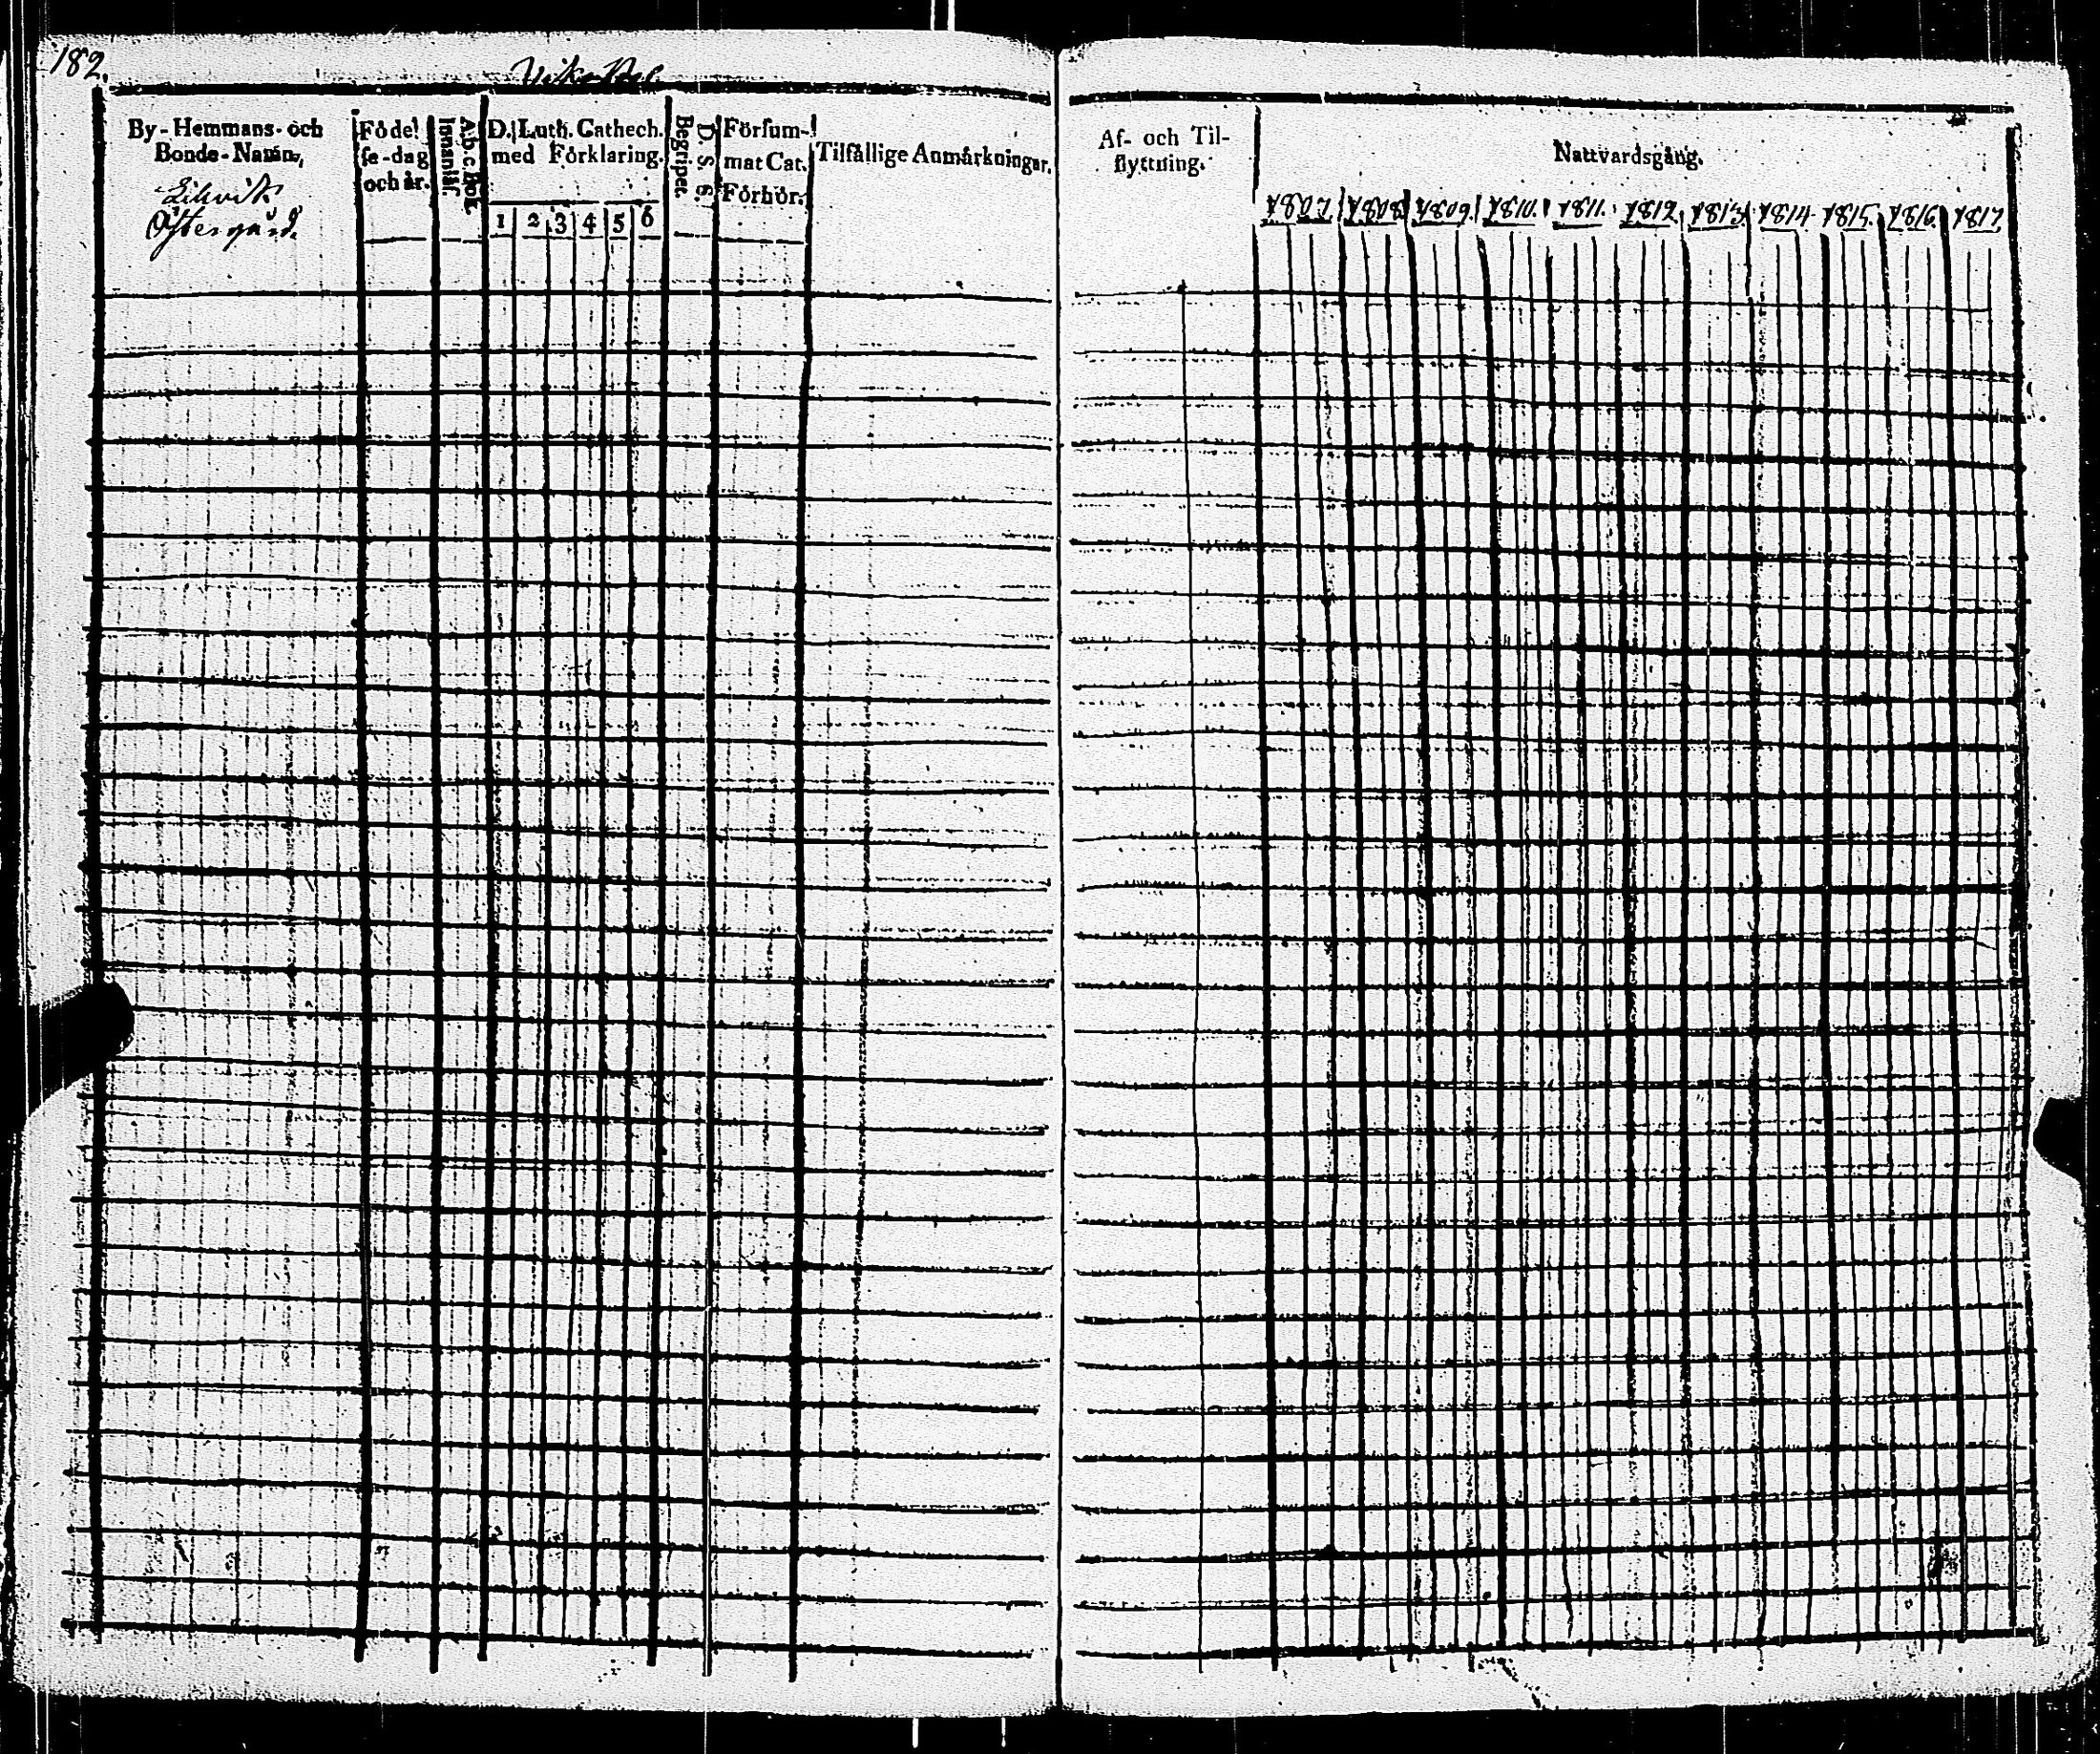 182.
By-Hemmans- och
Bonde-Namn,
Östergård
Födel
se-dag
och år.
A.b.c Bok.
Innanläs
D. Luth. Cathech.
med Förklaring.
1 2 3 4 5 6
D. S. S.
Begripet.
Försum-
mat Cat.
Förhör.
Tilfällige Anmärkningar.
Af- och Til-
flyttning.
Nattvardsgång.
1807. 1808. 1809. 1810. 1811. 1812. 1813. 1814. 1815. 1816. 1817.